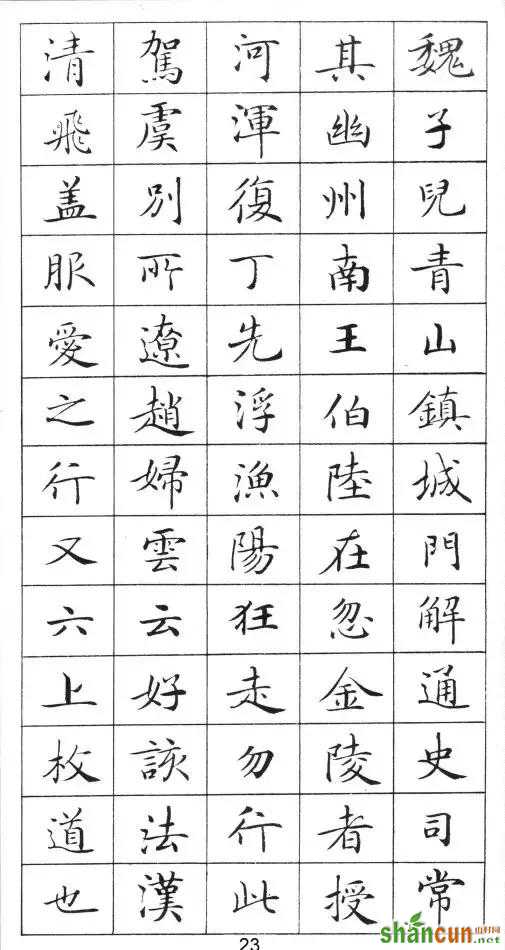 魏子兒青山鎮城門解通史司常
其幽州南王伯陸在忽金陵者授
河渾復丁先浮漁陽狂走勿行此
駕虞別所遼趙婦雲云好該法漢
清飛盖服愛之行又六上枚道也
23
shancun.net